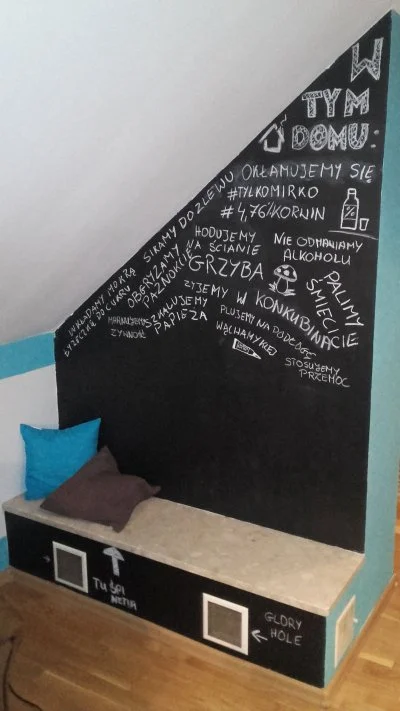 W
TYM
DOMU:
OKŁAMUJEMY SIĘ
#TYLKOMIRKO
#4,76%KORWIN
SIKAMY DO ZLEWU
HODUJEMY
NA ŚCIANIE
GRZYBA
NIE ODMAWIAMY
ALKOHOLU
OBGRYZAMY
PAZNOKCIE
WKŁADAMY MOKRĄ
ŁYŻECZKĘ DO CUKRU
PALIMY
ŚMIECI
ŻYJEMY W KONKUBINACIE
SZKALUJEMY
PAPIEŻA
MARNUJEMY
ŻYWNOŚĆ
PLUJEMY NA PODŁOGĘ
WĄCHAMY KLEJ
STOSUJEMY
PRZEMOC
TU ŚPI
GLORY
HOLE